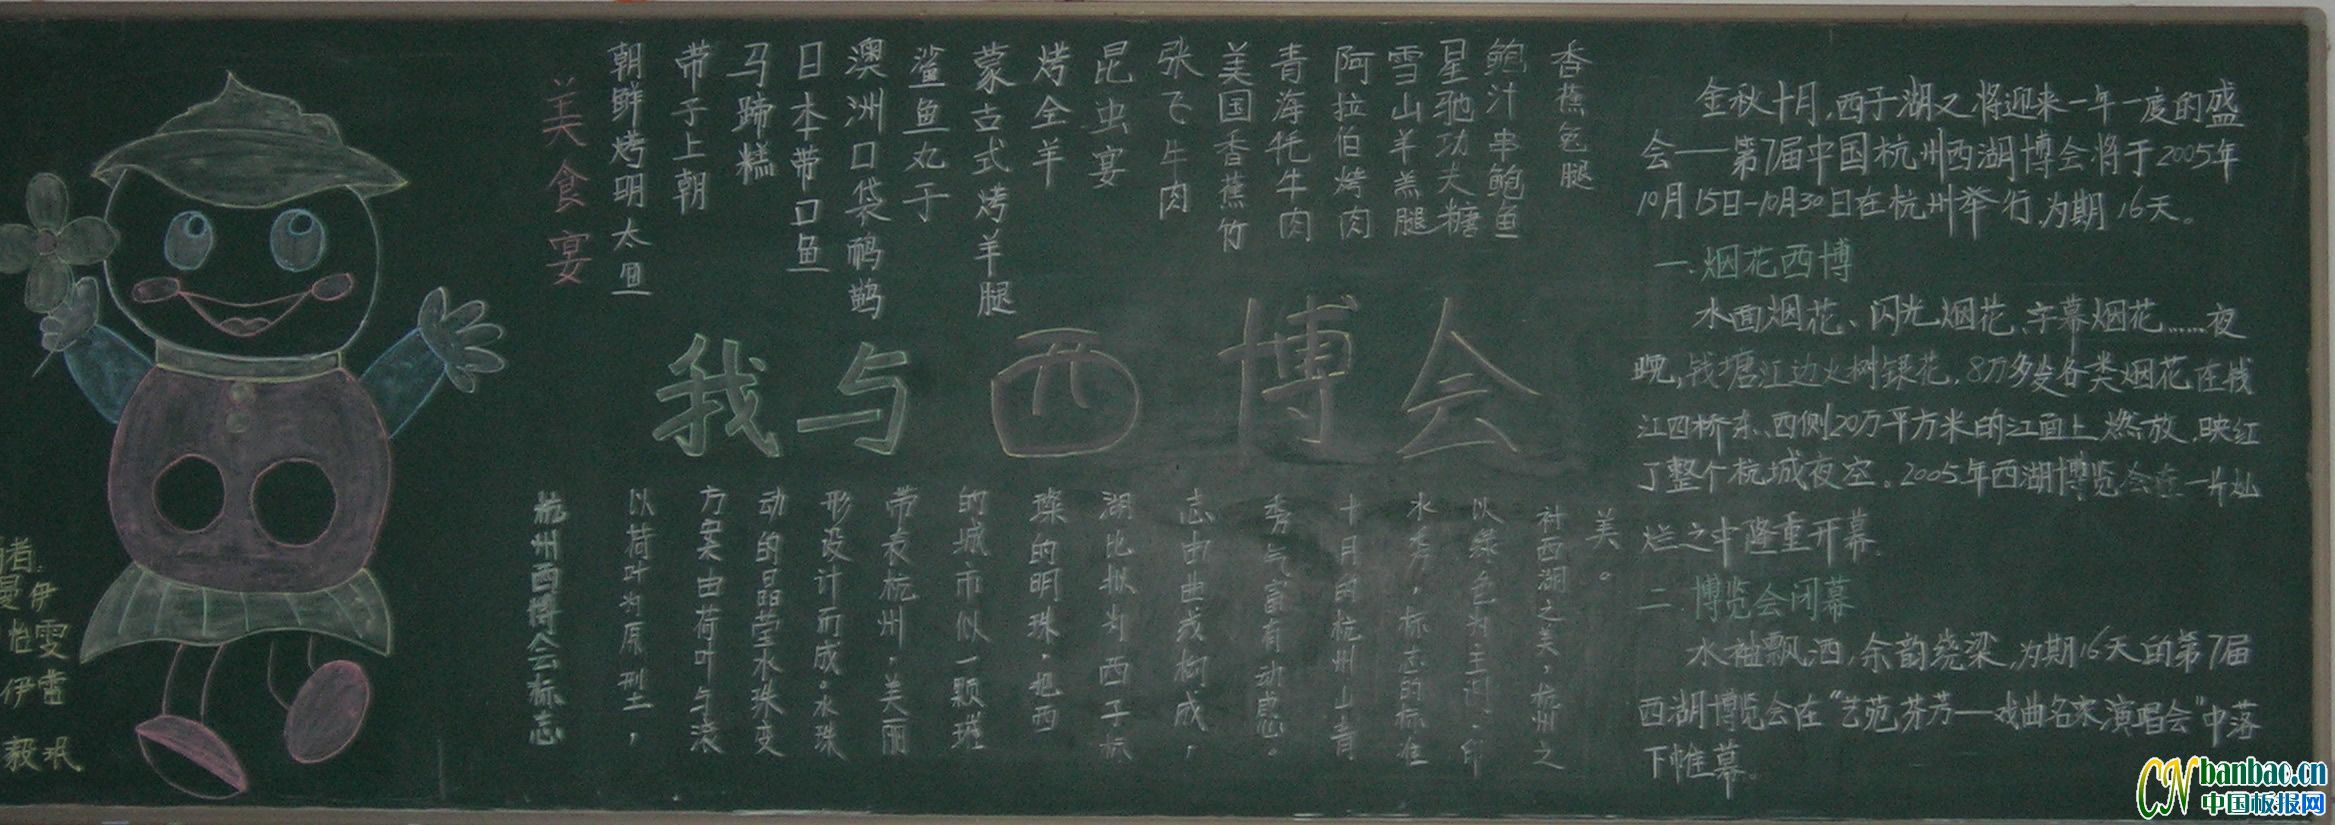 我与西博会
美食宴
朝鲜烤明太鱼
带子上朝
马蹄糕
日本带口鱼
澳洲口袋鹌鹑
鲨鱼丸子
蒙古式烤羊腿
烤全羊
昆虫宴
张飞牛肉
美国香蕉竹
青海牦牛肉
阿拉伯烤肉
雪山羊羔腿
星驰功夫糖
鲍汁串鲍鱼
香蕉包腿
杭州西博会标志
以荷叶为原型，
方案由荷叶与滚
动的晶莹水珠变
形设计而成。水珠
带表杭州，美丽
的城市似一颗璀
璨的明珠，把西
湖比拟为西子标
志由曲线构成，
秀气富有动感。
十月的杭州山青
水秀，标志的标准
以绿色为主调，印
衬西湖之美，杭州之
美。
金秋十月，西子湖又将迎来一年一度的盛
会——第7届中国杭州西湖博会将于2005年
10月15日-10月30日在杭州举行，为期16天。
一.烟花西博
水面烟花、闪光烟花、字幕烟花……夜
晚，钱塘江边火树银花，8万多发各类烟花在钱
江四桥东、西侧20万平方米的江面上燃放，映红
了整个杭城夜空。2005年西湖博览会在一片灿
烂之中隆重开幕。
二.博览会闭幕
水袖飘洒，余韵绕梁，为期16天的第7届
西湖博览会在“艺苑芬芳—戏曲名家演唱会”中落
下帷幕。
者:
曼伊
怡雯
伊雷
毅珉
CN banbao.cn
中国板报网